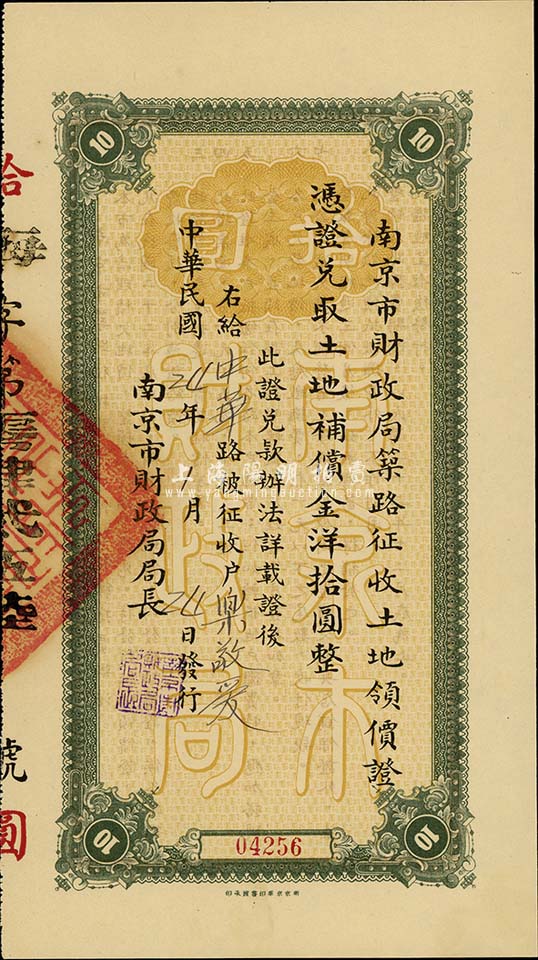 南京市財政局築路征收土地領價證
憑證兌取土地補償金洋拾圓整
此證兌款辦法詳載證後
右給中華路被征收户樂敬愛
中華民國24年1月24日發行
南京市財政局局長
拾圓
南京市
財政局
10
10
10
10
04256
南京京華印書館承印
上海陽明拍賣
www.yangmingauction.com
拾
字第
號
圓